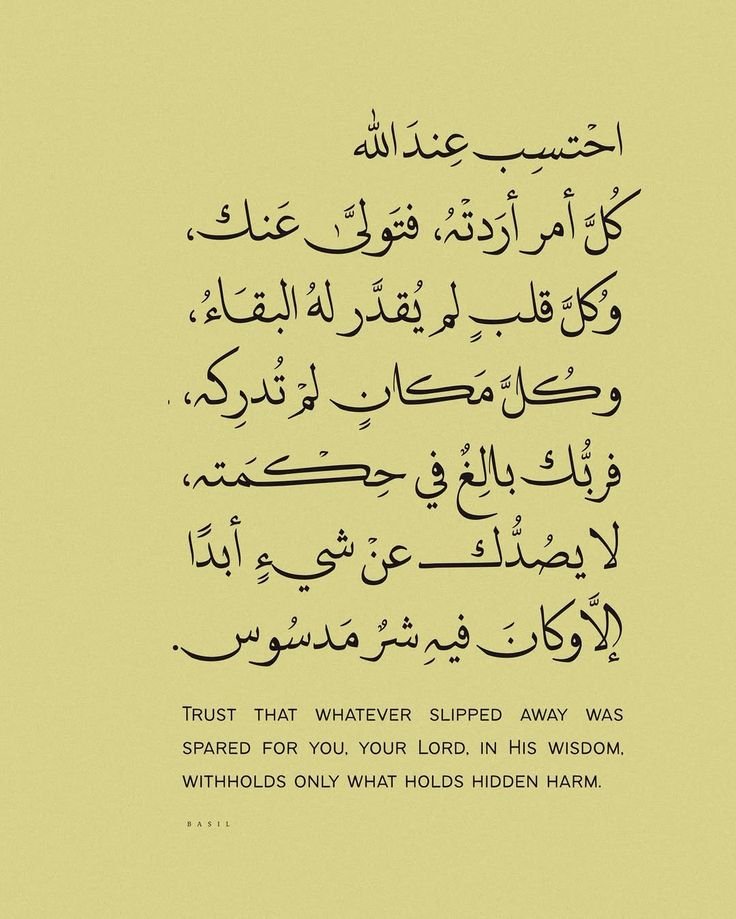 احْتسِب عِندَ الله
كُلَّ أمر أرَدتْهُ، فتَولىَّ عَنك،
وكُلَّ قلبٍ لم يُقدَّر لهُ البقَاءُ،
وكُلَّ مَكانٍ لمْ تُدرِكه،
فربُّك بالِغٌ في حِكْمَته،
لا يصُدُّك عنْ شيءٍ أبدًا
إلاَّ وكانَ فيهِ شرٌ مَدسُوس.
TRUST THAT WHATEVER SLIPPED AWAY WAS
SPARED FOR YOU, YOUR LORD, IN HIS WISDOM,
WITHHOLDS ONLY WHAT HOLDS HIDDEN HARM.
BASIL